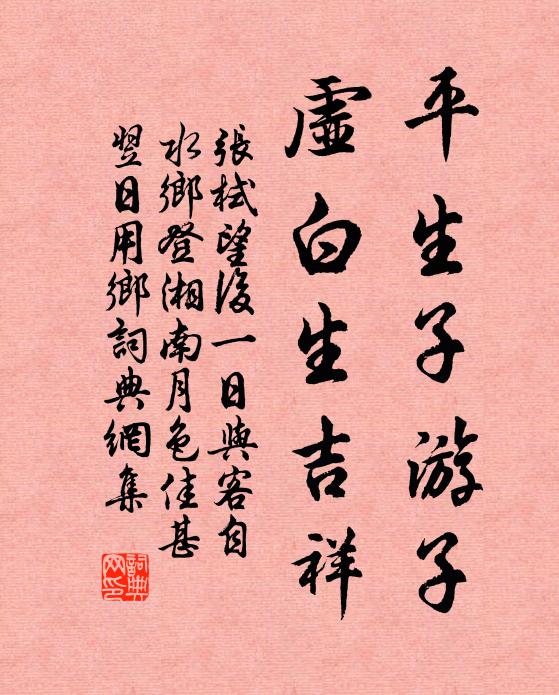 平生子游子
虛白生吉祥
張栻望後一日與客自
水鄉登湘南月色佳甚
翌日用鄉詞典網集
詞典
网印